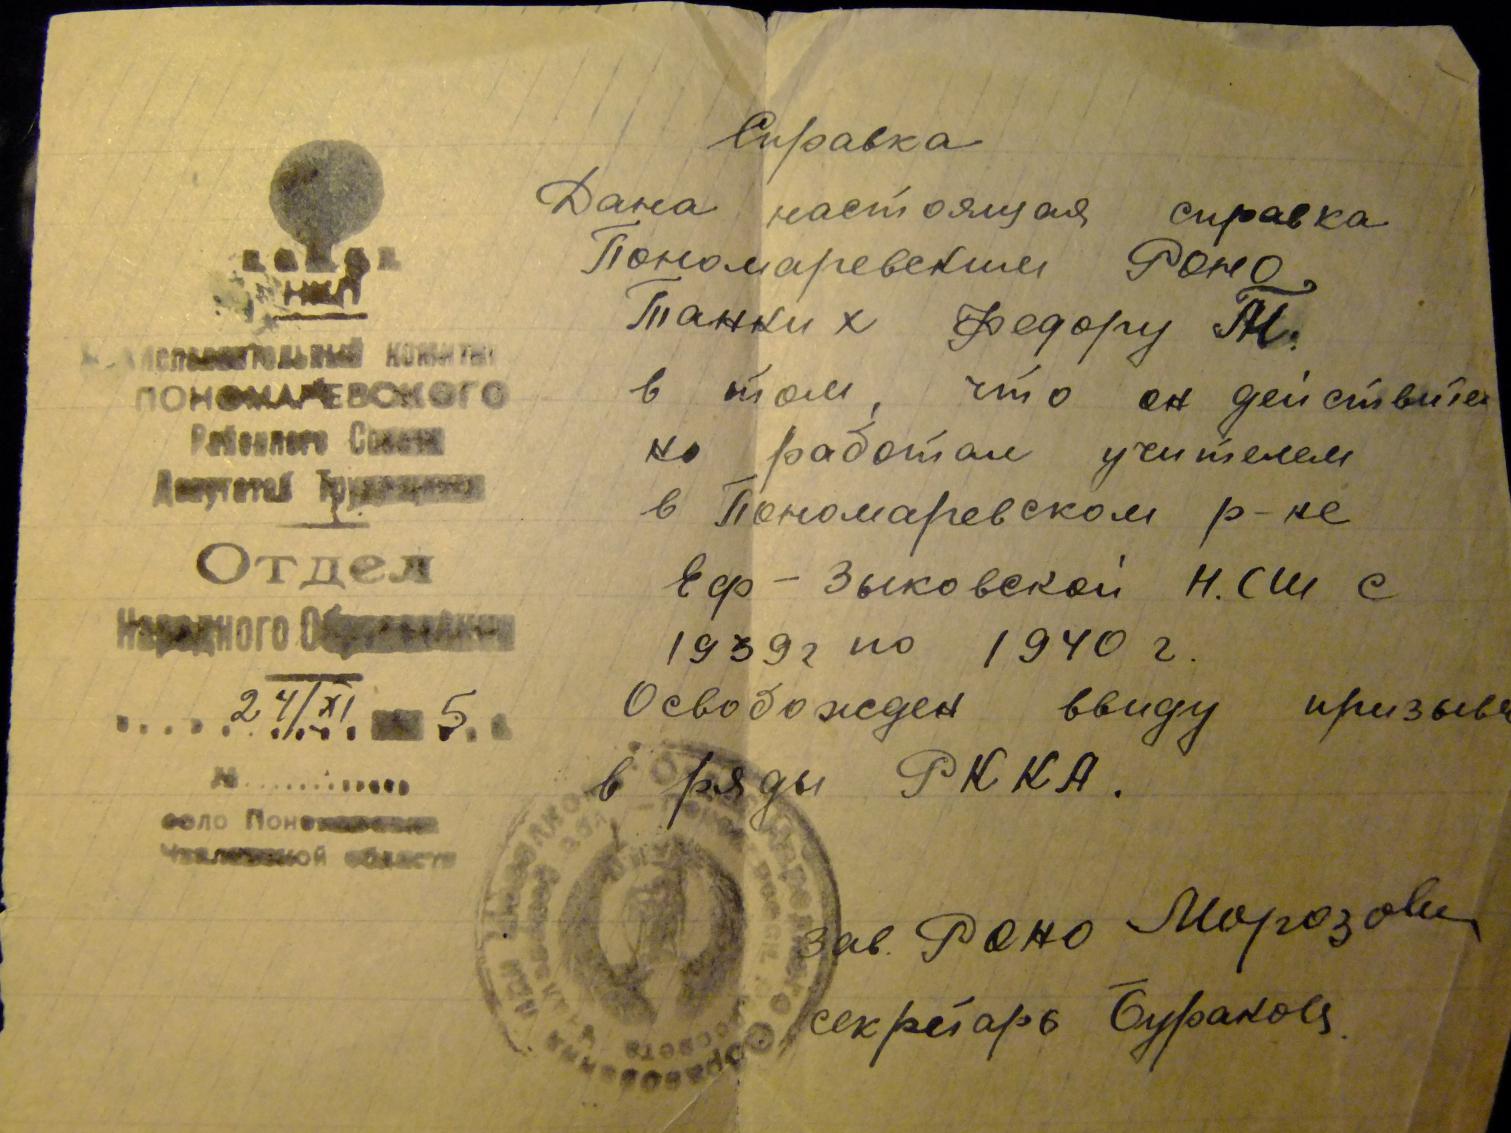 НКП
Исполнительный комитет
ПОНОМАРЕВСКОГО
Районного Совета
Депутатов Трудящихся
Отдел
Народного Образования
24/XI 5
№
село Поно
Чкаловской области
Справка
Дана настоящая справка
Пономаревским Роно
Танких Федору
в том, что он действител
но работал учителем
в Пономаревском р-не
Еф-Зыковской Н.СШ с
1939г по 1940 г.
Освобожден ввиду призыва
в ряды РККА.
зав. Роно Морозов
секретарь Буракова